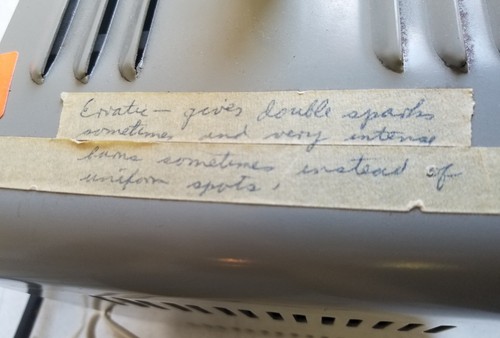 Erratic — gives double sparks
sometimes and very intense
sometimes instead of
uniform spots.